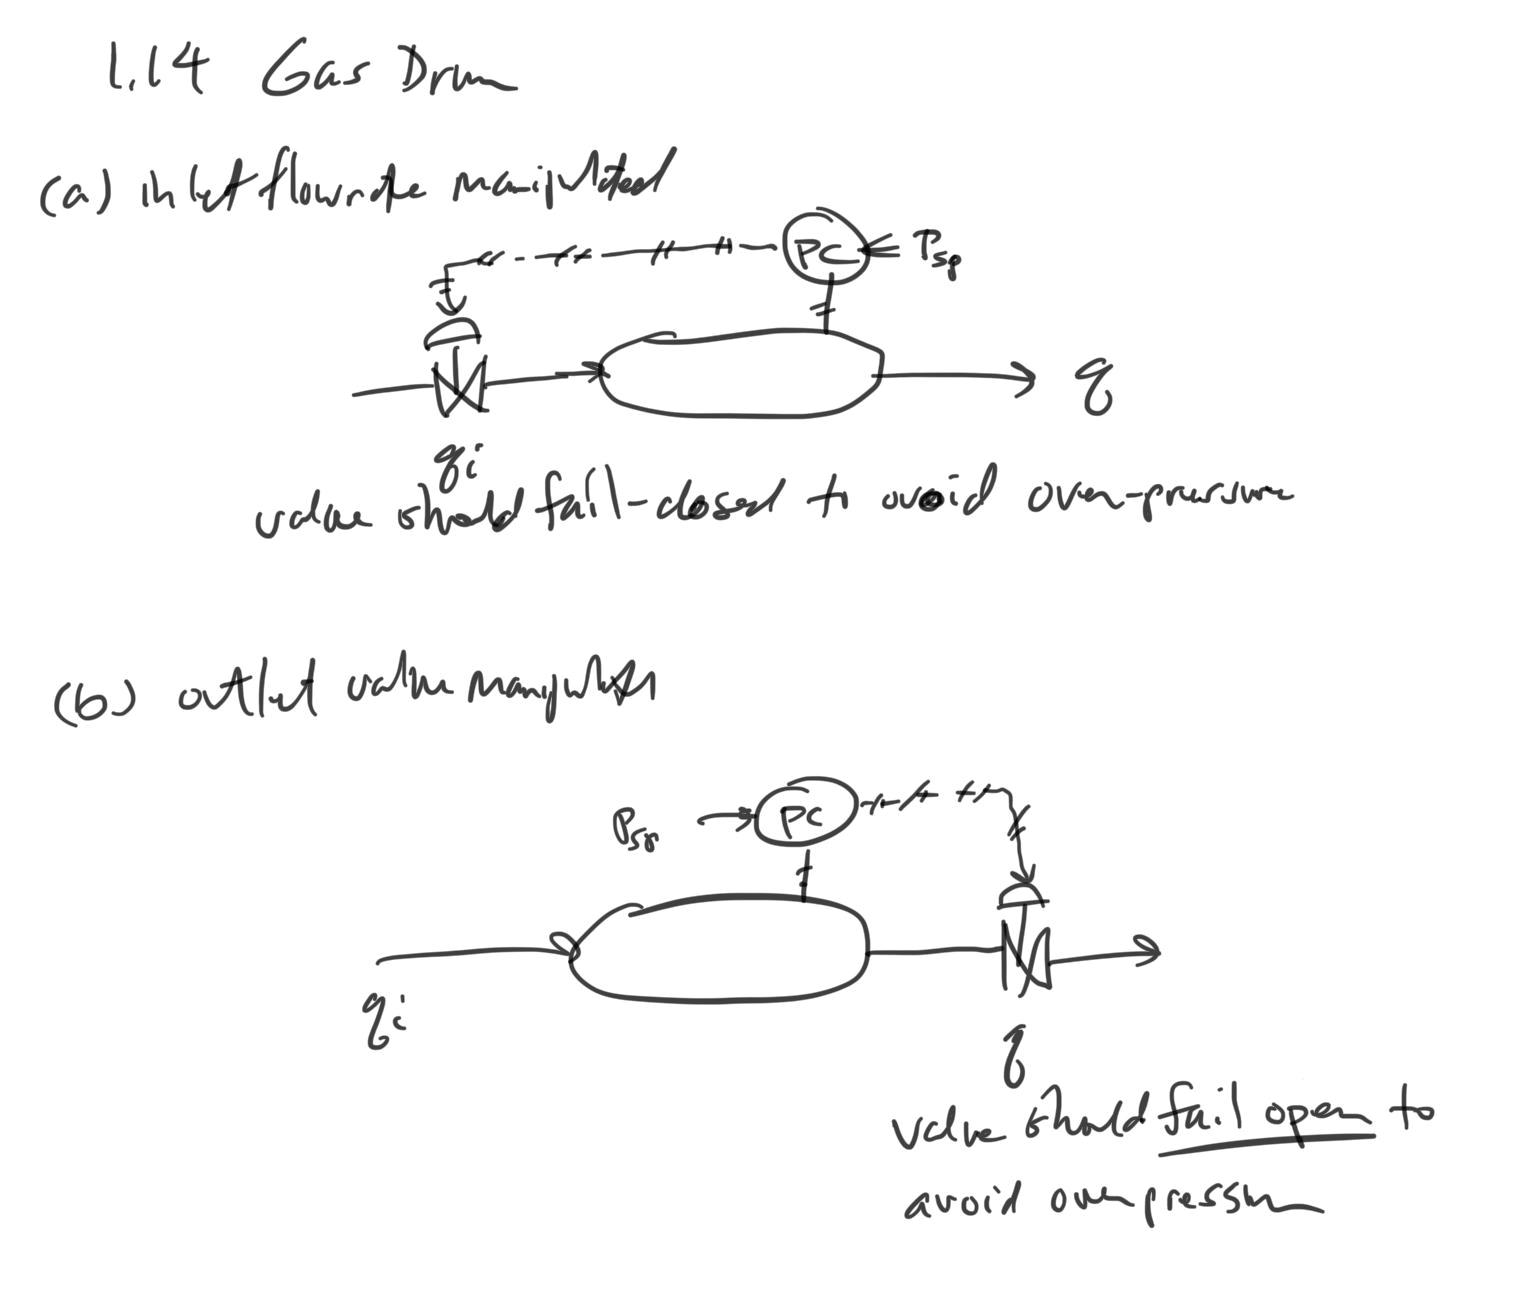 1.14 Gas Drum
(a) inlet flowrate manipulated
PC
Psp
q
qi
valve should fail-closed to avoid over-pressure
(b) outlet valve manipulated
Psp
PC
qi
q
valve should fail open to
avoid overpressure